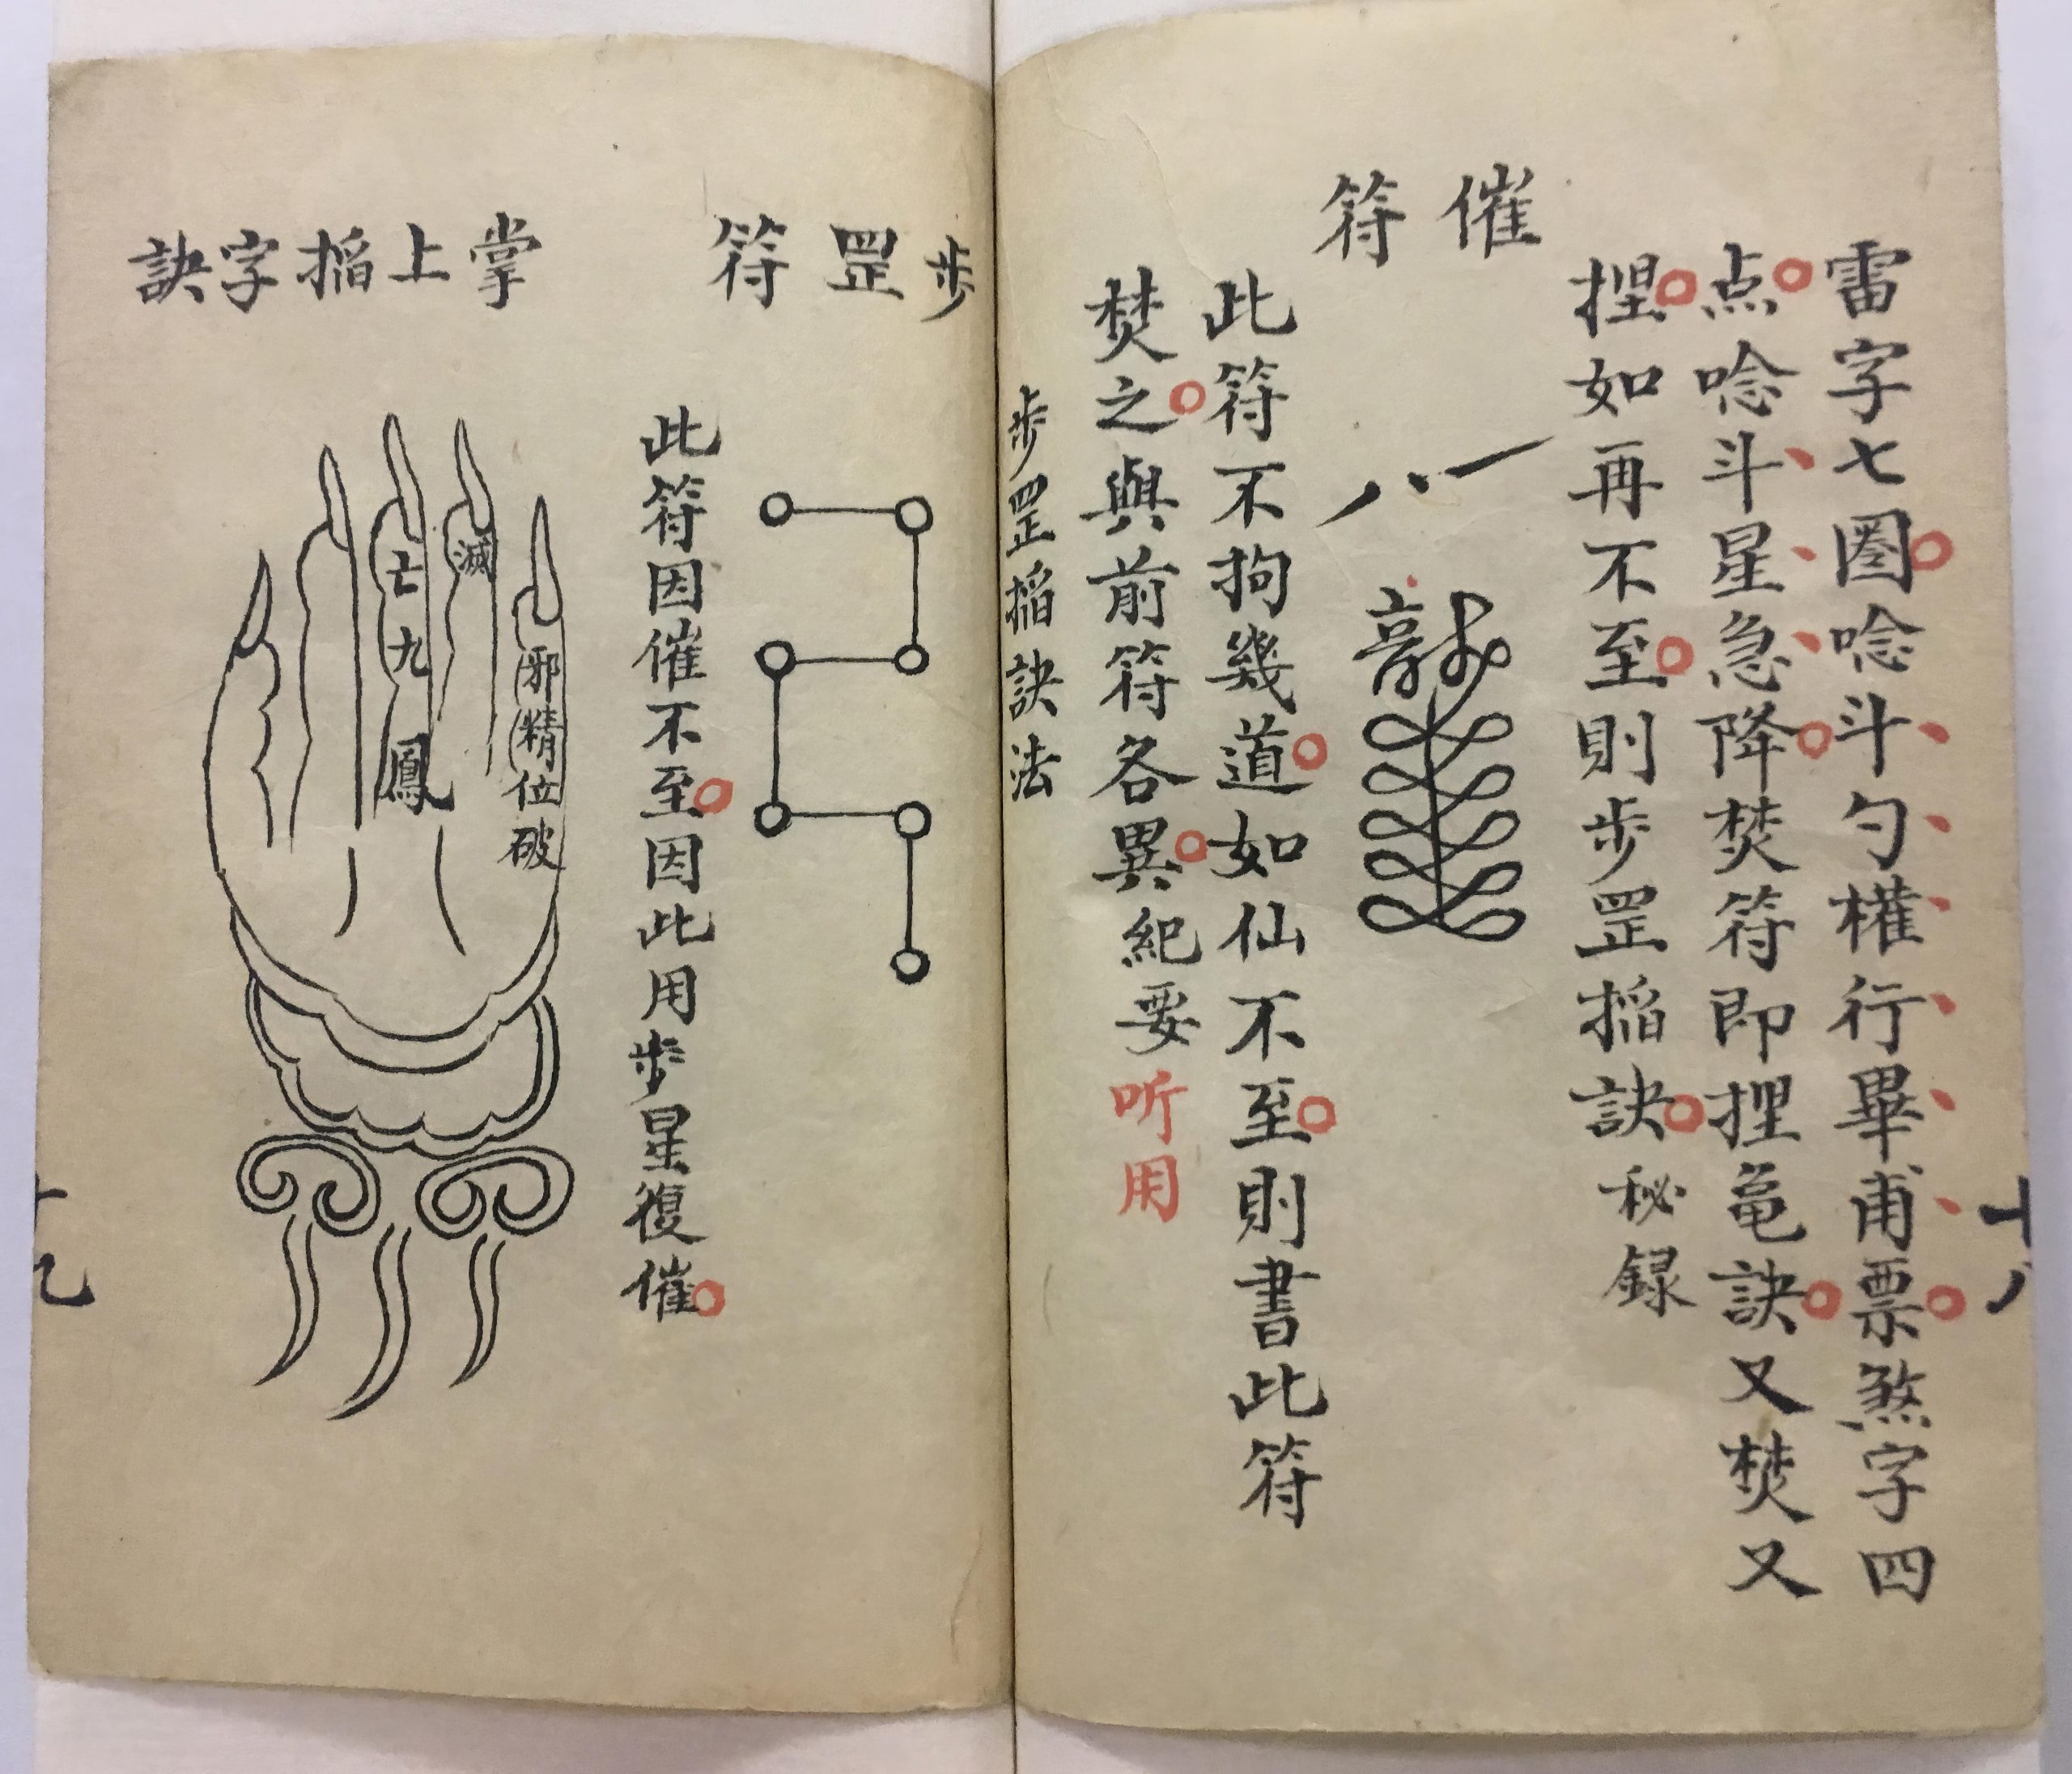 雷字七圈唸斗勺權行畢甫票煞字四
点唸斗星急降焚符即捏黾訣又焚又
捏如再不至則步罡搯訣秘録
催符
此符不拘幾道如仙不至則書此符
焚之與前符各異紀要听用
步罡搯訣法
步罡符
此符因催不至因此用步星復催
掌上搯字訣
邪精位破
滅
亡九鳳
十八
十九